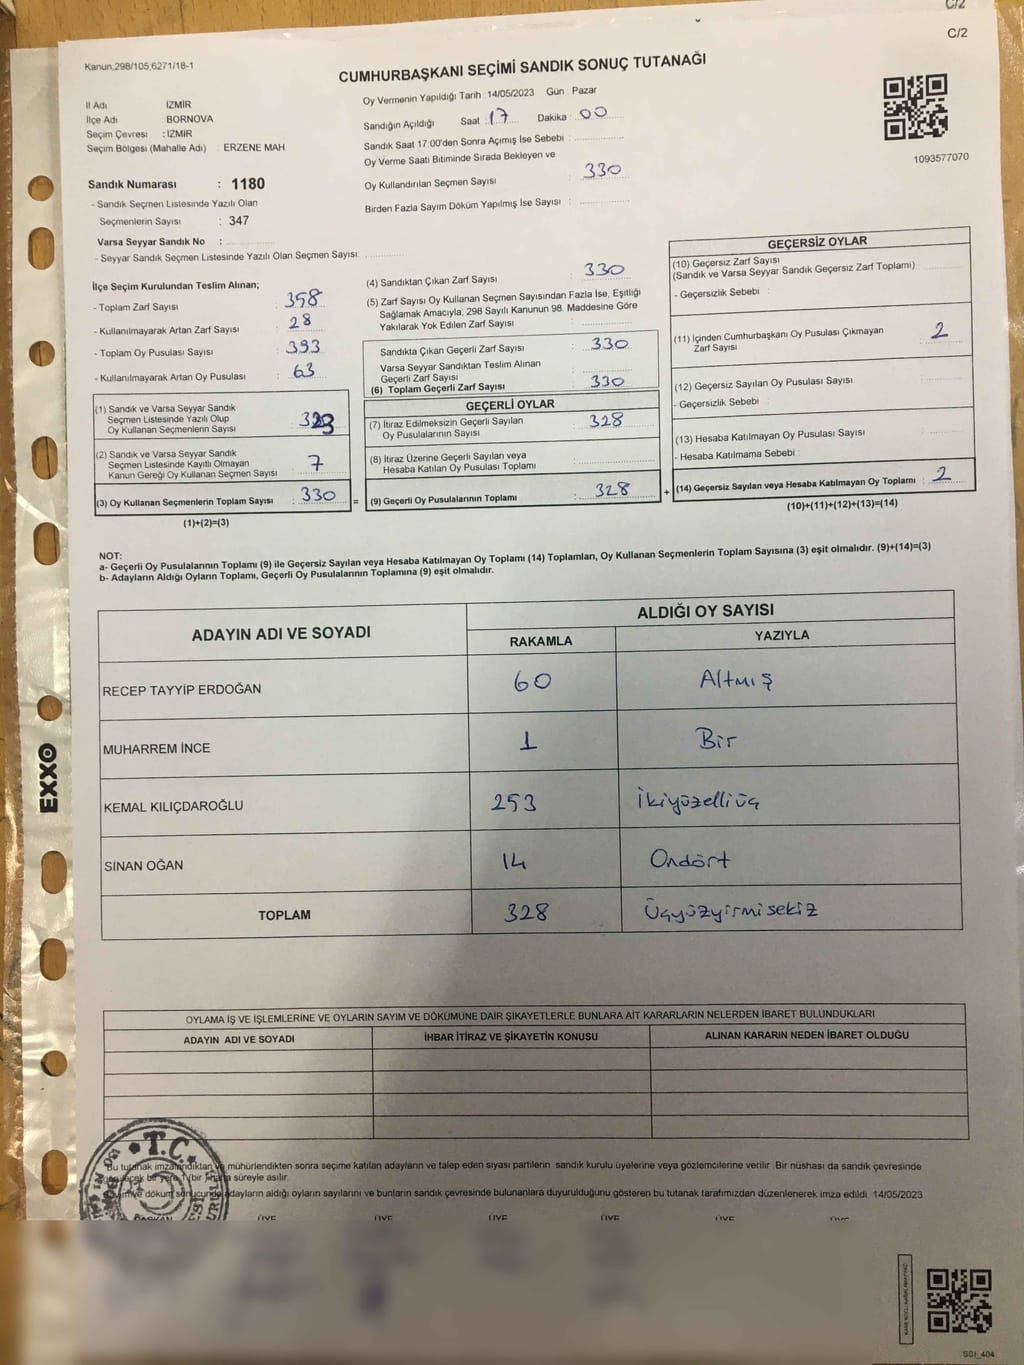 C/2
C/2
Kanun;298/105;6271/18-1
CUMHURBAŞKANI SEÇİMİ SANDIK SONUÇ TUTANAĞI
İl Adı : İZMİR
İlçe Adı : BORNOVA
Seçim Çevresi : İZMİR
Seçim Bölgesi (Mahalle Adı) : ERZENE MAH
Sandık Numarası : 1180
- Sandık Seçmen Listesinde Yazılı Olan
Seçmenlerin Sayısı : 347
Varsa Seyyar Sandık No :
- Seyyar Sandık Seçmen Listesinde Yazılı Olan Seçmen Sayısı:
Oy Vermenin Yapıldığı Tarih : 14/05/2023 Gün : Pazar
Sandığın Açıldığı Saat : 17 Dakika : 00
Sandık Saat 17:00'den Sonra Açımış İse Sebebi :
Oy Verme Saati Bitiminde Sırada Bekleyen ve
Oy Kullandırılan Seçmen Sayısı : 330
Birden Fazla Sayım Döküm Yapılmış İse Sayısı :
1093577070
İlçe Seçim Kurulundan Teslim Alınan;
- Toplam Zarf Sayısı : 358
- Kullanılmayarak Artan Zarf Sayısı : 28
- Toplam Oy Pusulası Sayısı : 393
- Kullanılmayarak Artan Oy Pusulası : 63
(1) Sandık ve Varsa Seyyar Sandık
Seçmen Listesinde Yazılı Olup
Oy Kullanan Seçmenlerin Sayısı : 323
(2) Sandık ve Varsa Seyyar Sandık
Seçmen Listesinde Kayıtlı Olmayan
Kanun Gereği Oy Kullanan Seçmen Sayısı : 7
(3) Oy Kullanan Seçmenlerin Toplam Sayısı : 330
(1)+(2)=(3)
=
(4) Sandıktan Çıkan Zarf Sayısı : 330
(5) Zarf Sayısı Oy Kullanan Seçmen Sayısından Fazla İse, Eşitliği
Sağlamak Amacıyla; 298 Sayılı Kanunun 98. Maddesine Göre
Yakılarak Yok Edilen Zarf Sayısı :
Sandıkta Çıkan Geçerli Zarf Sayısı : 330
Varsa Seyyar Sandıktan Teslim Alınan
Geçerli Zarf Sayısı :
(6) Toplam Geçerli Zarf Sayısı : 330
GEÇERLİ OYLAR
(7) İtiraz Edilmeksizin Geçerli Sayılan
Oy Pusulalarının Sayısı : 328
(8) İtiraz Üzerine Geçerli Sayılan veya
Hesaba Katılan Oy Pusulası Toplamı :
(9) Geçerli Oy Pusulalarının Toplamı : 328
+
GEÇERSİZ OYLAR
(10) Geçersiz Zarf Sayısı
(Sandık ve Varsa Seyyar Sandık Geçersiz Zarf Toplamı) :
- Geçersizlik Sebebi :
(11) İçinden Cumhurbaşkanı Oy Pusulası Çıkmayan
Zarf Sayısı : 2
(12) Geçersiz Sayılan Oy Pusulası Sayısı :
- Geçersizlik Sebebi :
(13) Hesaba Katılmayan Oy Pusulası Sayısı :
- Hesaba Katılmama Sebebi :
(14) Geçersiz Sayılan veya Hesaba Katılmayan Oy Toplamı : 2
(10)+(11)+(12)+(13)=(14)
NOT:
a- Geçerli Oy Pusulalarının Toplamı (9) ile Geçersiz Sayılan veya Hesaba Katılmayan Oy Toplamı (14) Toplamları, Oy Kullanan Seçmenlerin Toplam Sayısına (3) eşit olmalıdır. (9)+(14)=(3)
b- Adayların Aldığı Oyların Toplamı, Geçerli Oy Pusulalarının Toplamına (9) eşit olmalıdır.
ADAYIN ADI VE SOYADI ALDIĞI OY SAYISI
RAKAMLA YAZIYLA
RECEP TAYYİP ERDOĞAN 60 Altmış
MUHARREM İNCE 1 Bir
KEMAL KILIÇDAROĞLU 253 İkiyüzelliüç
SİNAN OĞAN 14 Ondört
TOPLAM 328 Üçyüzyirmisekiz
OYLAMA İŞ VE İŞLEMLERİNE VE OYLARIN SAYIM VE DÖKÜMÜNE DAİR ŞİKAYETLERLE BUNLARA AİT KARARLARIN NELERDEN İBARET BULUNDUKLARI
ADAYIN ADI VE SOYADI İHBAR İTİRAZ VE ŞİKAYETİN KONUSU ALINAN KARARIN NEDEN İBARET OLDUĞU
T.C.
Bu tutanak imzalandıktan ve mühürlendikten sonra seçime katılan adayların ve talep eden siyasi partilerin sandık kurulu üyelerine veya gözlemcilerine verilir. Bir nüshası da sandık çevresinde
bir yere 1 (bir) hafta süreyle asılır.
Sayım ve döküm sonucunda adayların aldığı oyların sayılarını ve bunların sandık çevresinde bulunanlara duyurulduğunu gösteren bu tutanak tarafımızdan düzenlenerek imza edildi 14/05/2023
BAŞKAN ÜYE ÜYE ÜYE ÜYE ÜYE ÜYE
EXXO
SSI_404